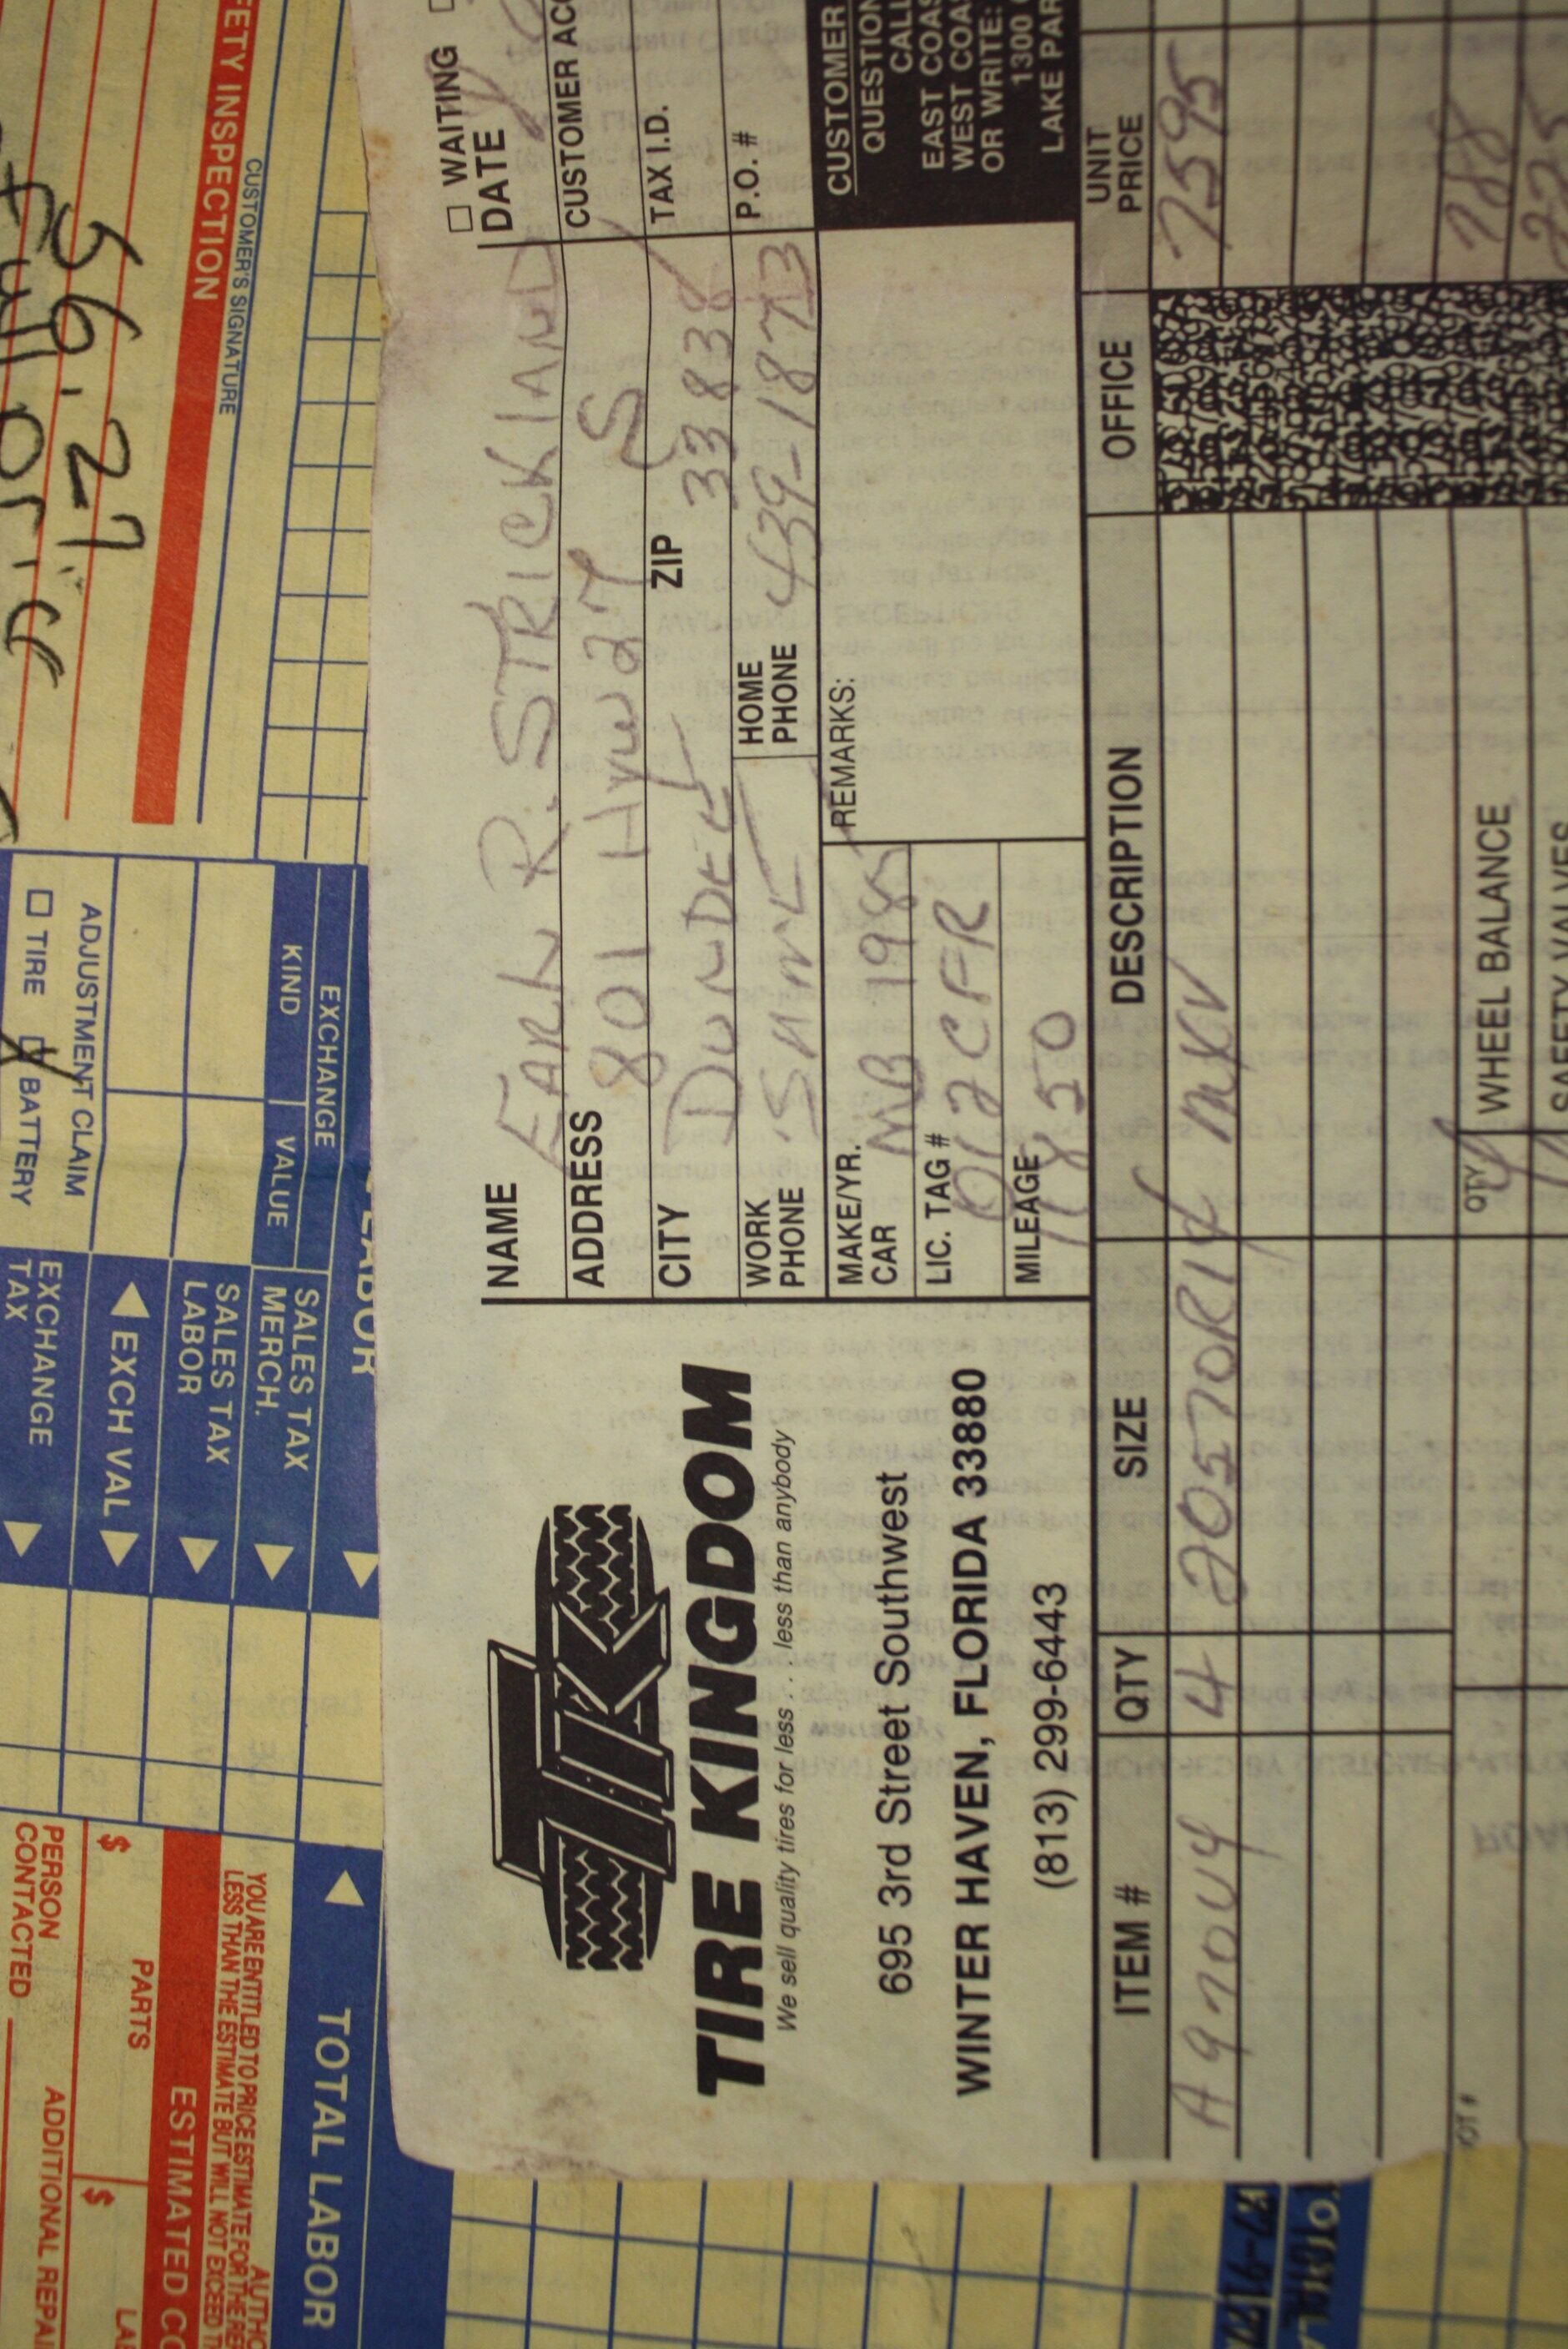 TK
TIRE KINGDOM
We sell quality tires for less . . . less than anybody
695 3rd Street Southwest
WINTER HAVEN, FLORIDA 33880
(813) 299-6443
WAITING
NAME EARL R. STRICKLAND DATE
ADDRESS 801 Hyw 27 S CUSTOMER AC
CITY DUNDEE ZIP 33838 TAX I.D.
WORK PHONE SAME HOME PHONE 439-1873 P.O. #
MAKE/YR. CAR MB 1985 REMARKS:
LIC. TAG # 012 CFR
MILEAGE 7850
CUSTOMER
QUESTION
CALL
EAST COAS
WEST COAS
OR WRITE:
1300
LAKE PAR
ITEM # QTY SIZE DESCRIPTION OFFICE UNIT PRICE
A 970U4 4 20570R14 MXV 7595
QTY 4 WHEEL BALANCE 788
SAFETY VALVES 225
FETY INSPECTION
CUSTOMER'S SIGNATURE
56.27
price
ADJUSTMENT CLAIM
TIRE BATTERY
EXCHANGE
KIND VALUE
LABOR
SALES TAX MERCH.
SALES TAX LABOR
EXCH VAL
EXCHANGE TAX
TOTAL LABOR
YOU ARE ENTITLED TO PRICE ESTIMATE FOR THE RE
LESS THAN THE ESTIMATE BUT WILL NOT EXCEED T
ESTIMATED CO
PARTS
$ $
ADDITIONAL REPAI
PERSON CONTACTED